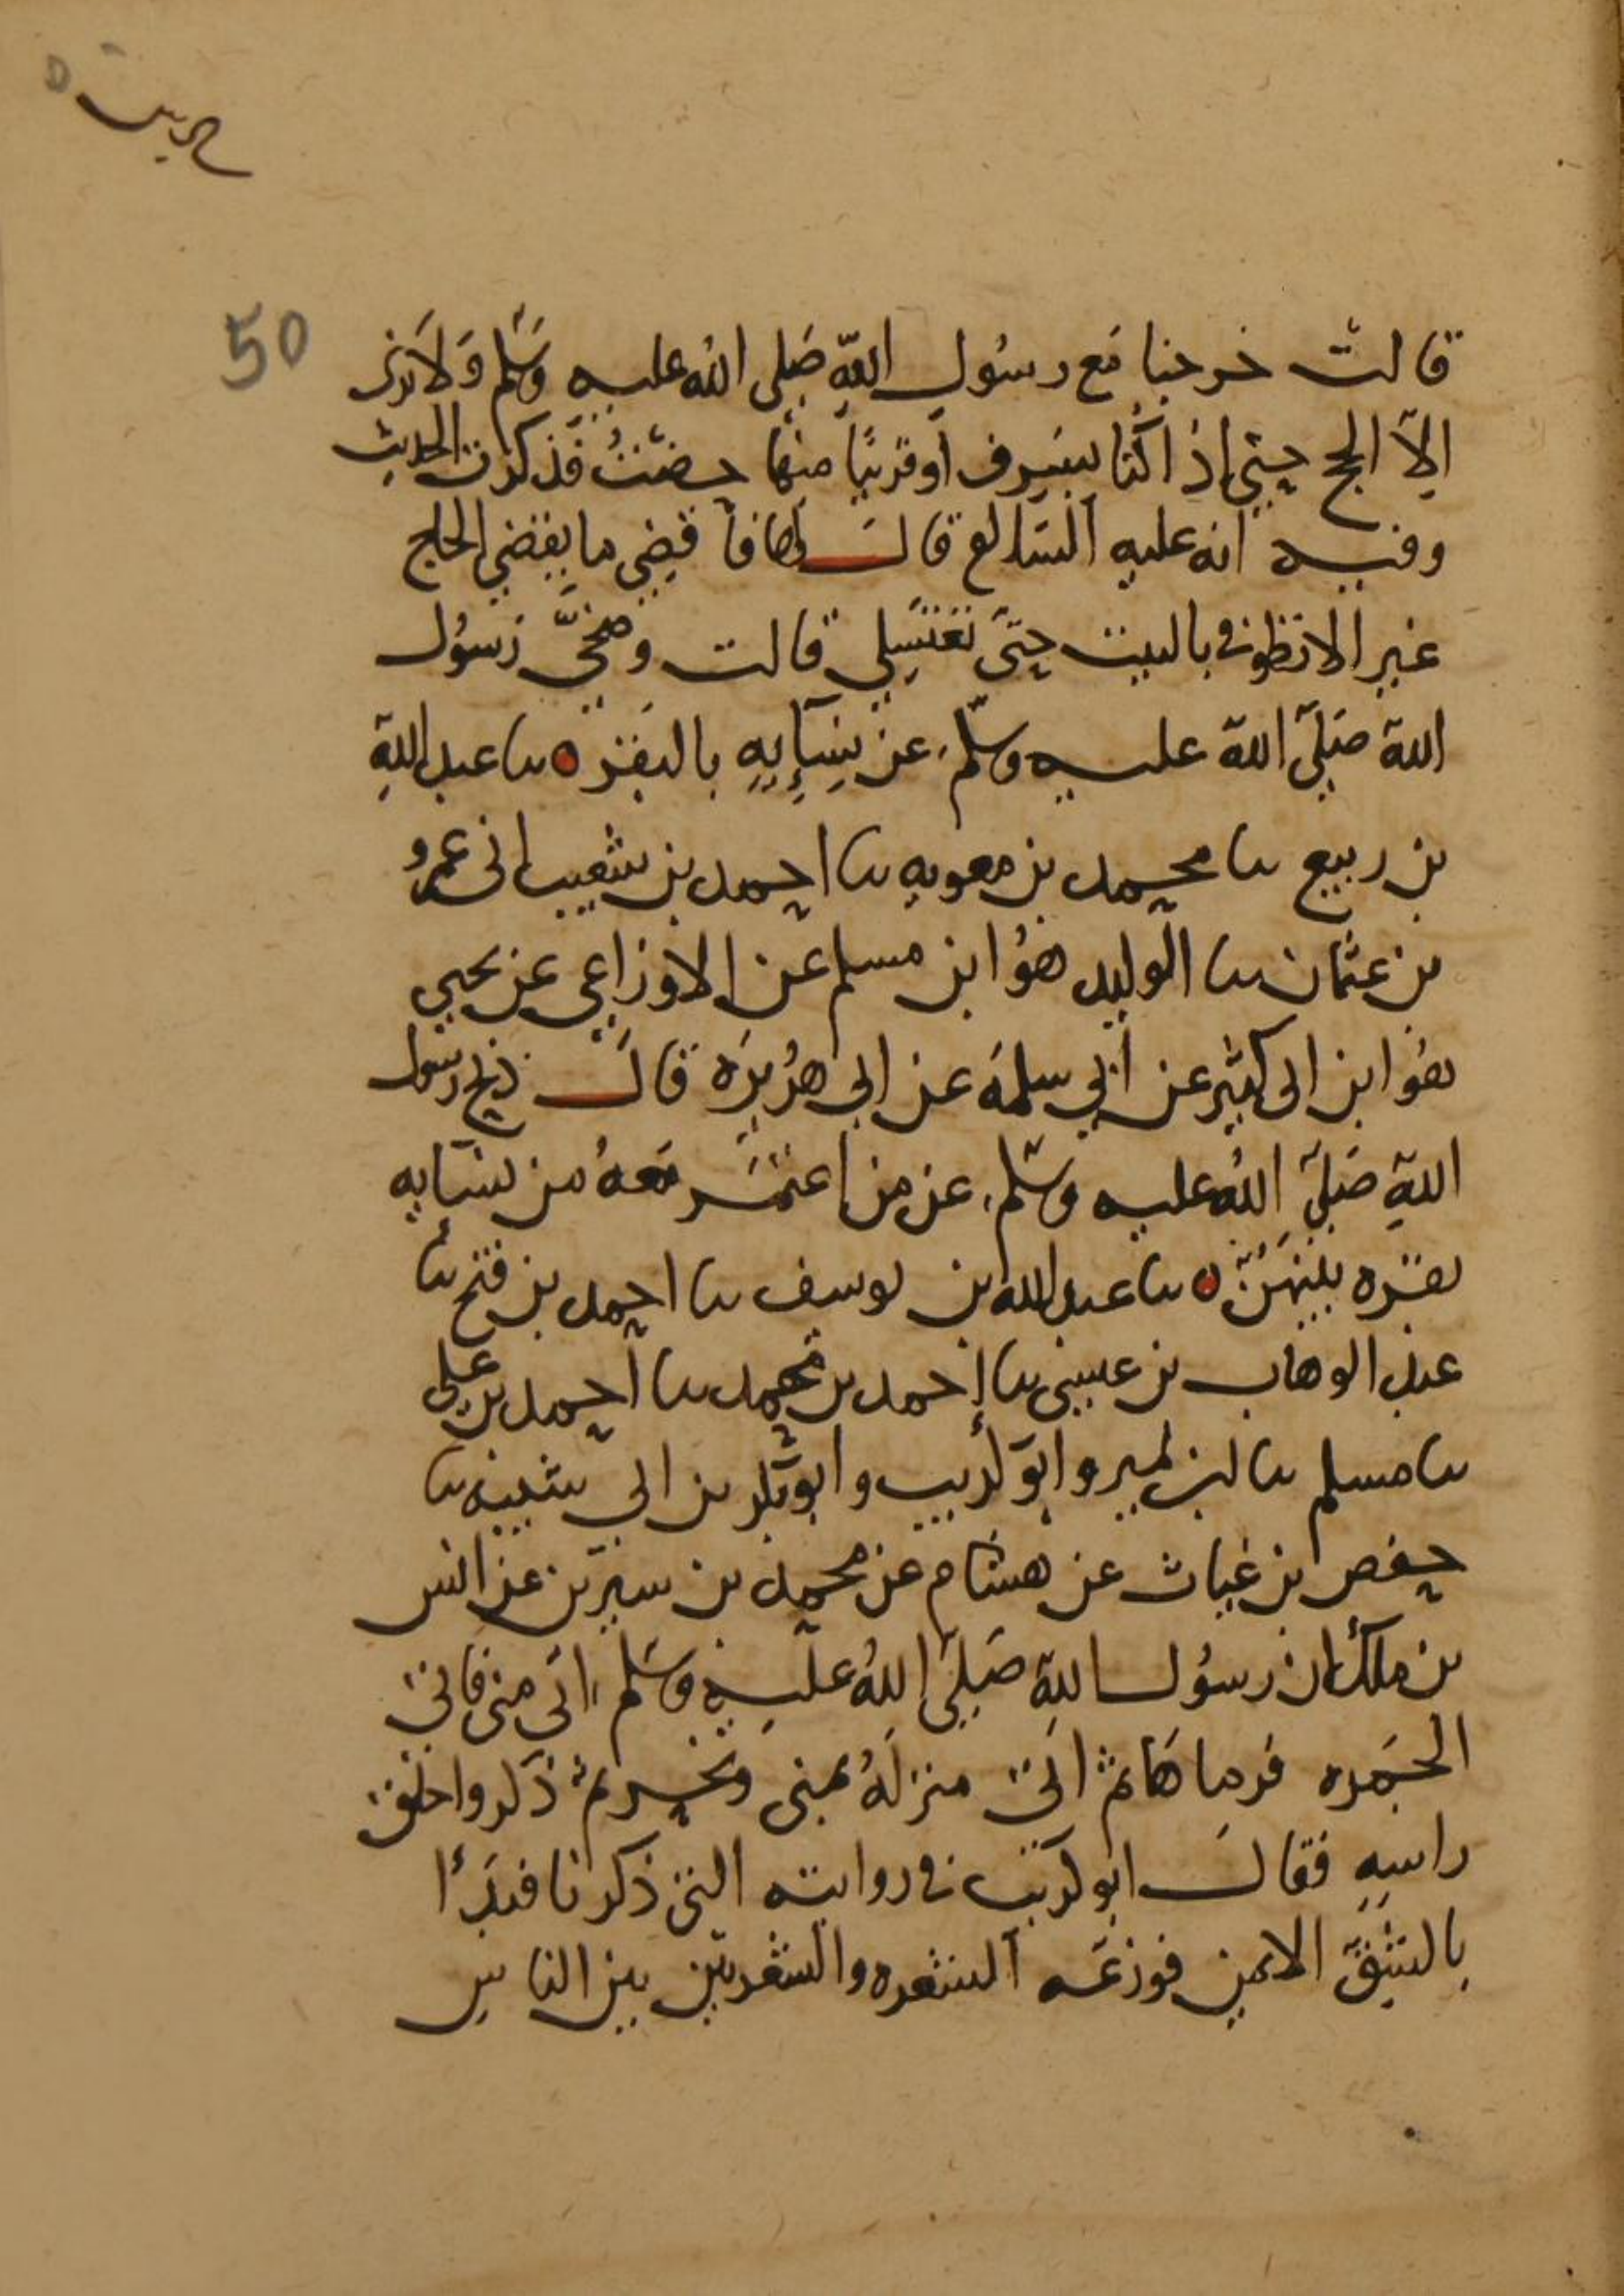 50
قالت خرجنا مع رسول الله صلى الله عليه وسلم ولا نرى
الا الحج حتى إذا كنا بسرف أو قريبًا منها حضت فذكرت الحديث
وفيه انه عليه السلام قال لها فاقضي ما يقضي الحاج
غير الا تطوفي بالبيت حتى تغتسلي قالت وضحّى رسول
الله صلى الله عليه وسلم عن نسآئه بالبقر ٥ نا عبد الله
بن ربيع نا محمد بن معويه نا احمد بن شعيب انى عمرو
بن عثمان نا الوليد هو ابن مسلم عن الاوزاعي عن يحيى
هو ابن ابى كثير عن أبي سلمه عن ابى هريره قال ذبح رسول
الله صلى الله عليه وسلم عن من اعتمر معه من نسايه
بقره بينهن ٥ نا عبد الله بن يوسف نا احمد بن فتح نا
عبد الوهاب بن عيسى نا احمد بن محمد نا احمد بن على
نا مسلم نا ابن نمير وابو كريب وابو بكر بن ابي شيبه نا
حفص بن غياث عن هشام عن محمد بن سيرين عن انس
بن ملك أن رسول الله صلى الله عليه وسلم اتى منى فاتى
الجمره فرماها ثم اتى منزله بمنى ونحر ثم ذكروا حلق
راسه فقال ابو كريب في روايته التي ذكرنا فبدأ
بالشق الايمن فوزعه الشعره والشعرتين بين الناس